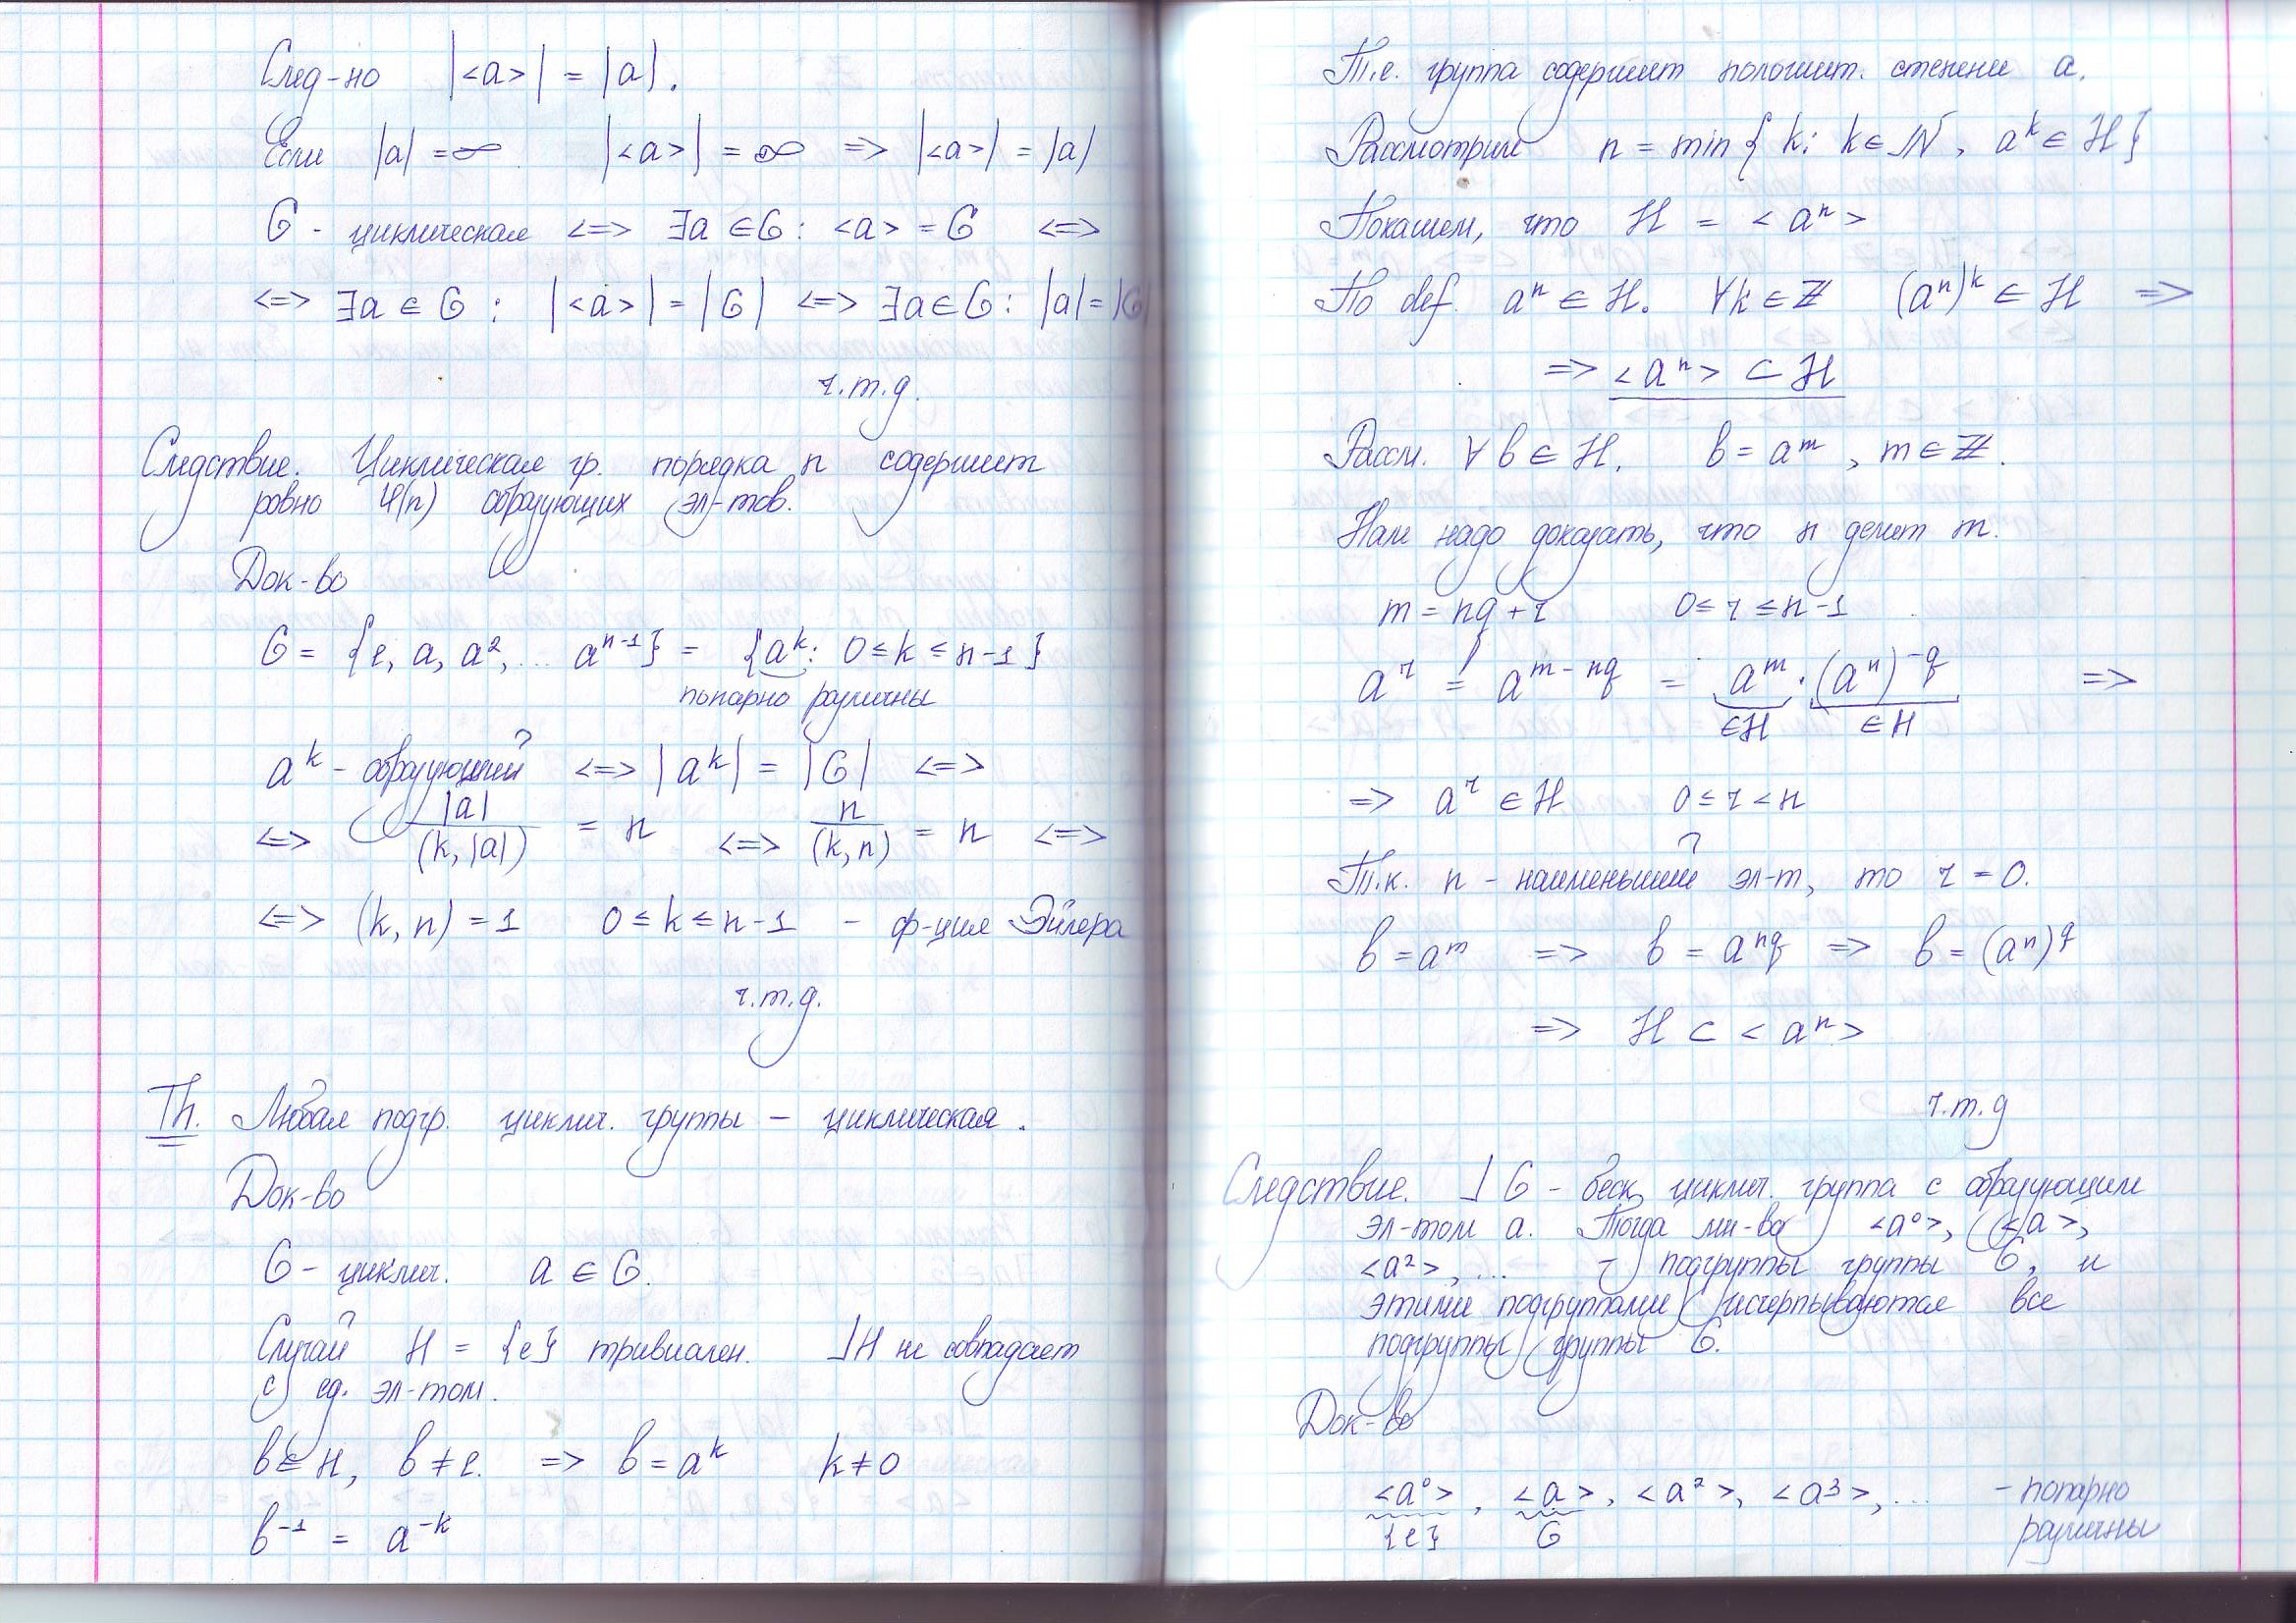 След-но |<a>| = |a|.
Если |a| = ∞ |<a>| = ∞ => |<a>| = |a|
G - циклическая <=> ∃a ∈ G : <a> = G <=>
<=> ∃a ∈ G : |<a>| = |G| <=> ∃a ∈ G : |a| = |G|
ч.т.д.
Следствие. Циклическая гр. порядка n содержит
ровно φ(n) образующих эл-тов.
Док-во
G = {e, a, a², ... aⁿ⁻¹} = {aᵏ: 0 ≤ k ≤ n-1}
попарно различны
aᵏ - образующий <=> |aᵏ| = |G| <=>
<=> |a| / (k, |a|) = n <=> n / (k, n) = n <=>
<=> (k, n) = 1 0 ≤ k ≤ n-1 - ф-ция Эйлера
ч.т.д.
Th. Любая подгр. циклич. группы - циклическая.
Док-во
G - циклич. a ∈ G.
Случай H = {e} тривиален. ⅃H не совпадает
с ед. эл-том.
b ∈ H, b ≠ e. => b = aᵏ k ≠ 0
b⁻¹ = a⁻ᵏ
Т.е. группа содержит положит. степени a.
Рассмотрим n = min{k: k ∈ ℕ, aᵏ ∈ H}
Покажем, что H = <aⁿ>
По def. aⁿ ∈ H. ∀k ∈ ℤ (aⁿ)ᵏ ∈ H =>
=> <aⁿ> ⊂ H
Рассм. ∀b ∈ H. b = aᵐ, m ∈ ℤ.
Нам надо доказать, что n делит m.
m = nq + r 0 ≤ r ≤ n-1
a^r = a^(m-nq) = a^m · (a^n)^(-q) =>
∈H ∈H
=> a^r ∈ H 0 ≤ r < n
Т.к. n - наименьший эл-т, то r = 0.
b = a^m => b = a^(nq) => b = (a^n)^q
=> H ⊂ <aⁿ>
ч.т.д
Следствие. ⅃ G - беск. циклич. группа с образующим
эл-том a. Тогда мн-во <a⁰>, <a>,
<a²>, ... - подгруппы группы G, и
этими подгруппами исчерпываются все
подгруппы группы G.
Док-во
<a⁰>, <a>, <a²>, <a³>, ... - попарно
{e} G различны